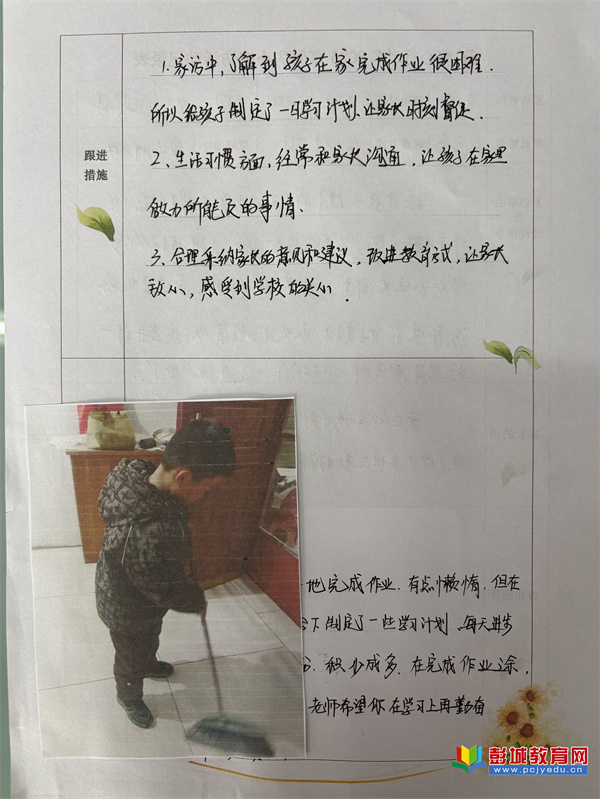 1.家访中,了解到孩子在家完成作业很困难.
所以给孩子制定了一日学习计划.让家长时刻督促.
跟进
措施
2、生活习惯方面,经常和家长沟通,让孩子在家里
做力所能及的事情.
3、合理采纳家长的意见和建议,改进教育方式,让家长
放心,感受到学校的关心.
地完成作业.有点懒惰.但在
下制定了一些学习计划 每天进步
积少成多.在完成作业之余,
老师希望你在学习上再勤奋
彭城教育网
www.pcjyedu.cn